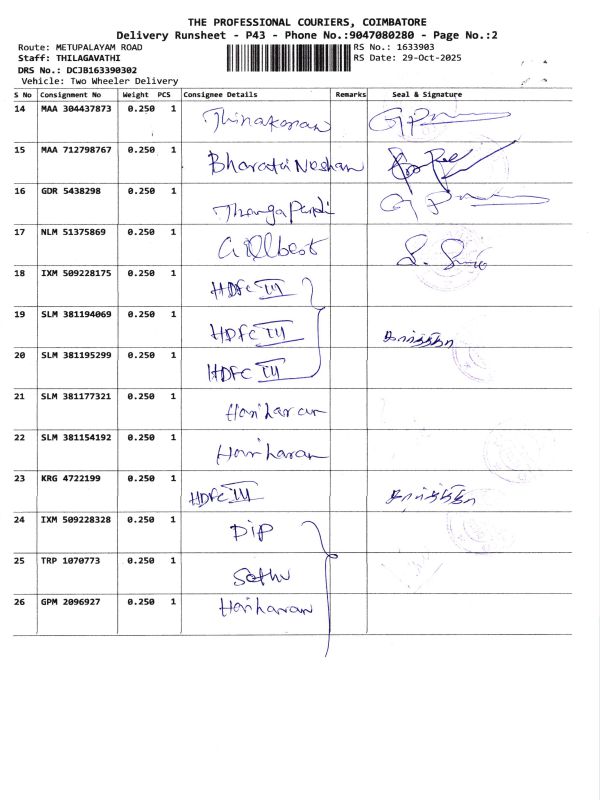 THE PROFESSIONAL COURIERS, COIMBATORE
Delivery Runsheet - P43 - Phone No.:9047080280 - Page No.:2
Route: METUPALAYAM ROAD RS No.: 1633903
Staff: THILAGAVATHI RS Date: 29-Oct-2025
DRS No.: DCJB163390302
Vehicle: Two Wheeler Delivery
S No Consignment No Weight PCS Consignee Details Remarks Seal & Signature
14 MAA 304437873 0.250 1 Thinakaran
15 MAA 712798767 0.250 1 Bharathi Noshan
16 GDR 5438298 0.250 1 Thangapandi
17 NLM 51375869 0.250 1 Gilbert
18 IXM 509228175 0.250 1 HDFC III
19 SLM 381194069 0.250 1 HDFC III
20 SLM 381195299 0.250 1 HDFC III
21 SLM 381177321 0.250 1 Hariharan
22 SLM 381154192 0.250 1 Hariharan
23 KRG 4722199 0.250 1 HDFC III
24 IXM 509228328 0.250 1 DIP
25 TRP 1070773 0.250 1 Sethu
26 GPM 2096927 0.250 1 Hariharan